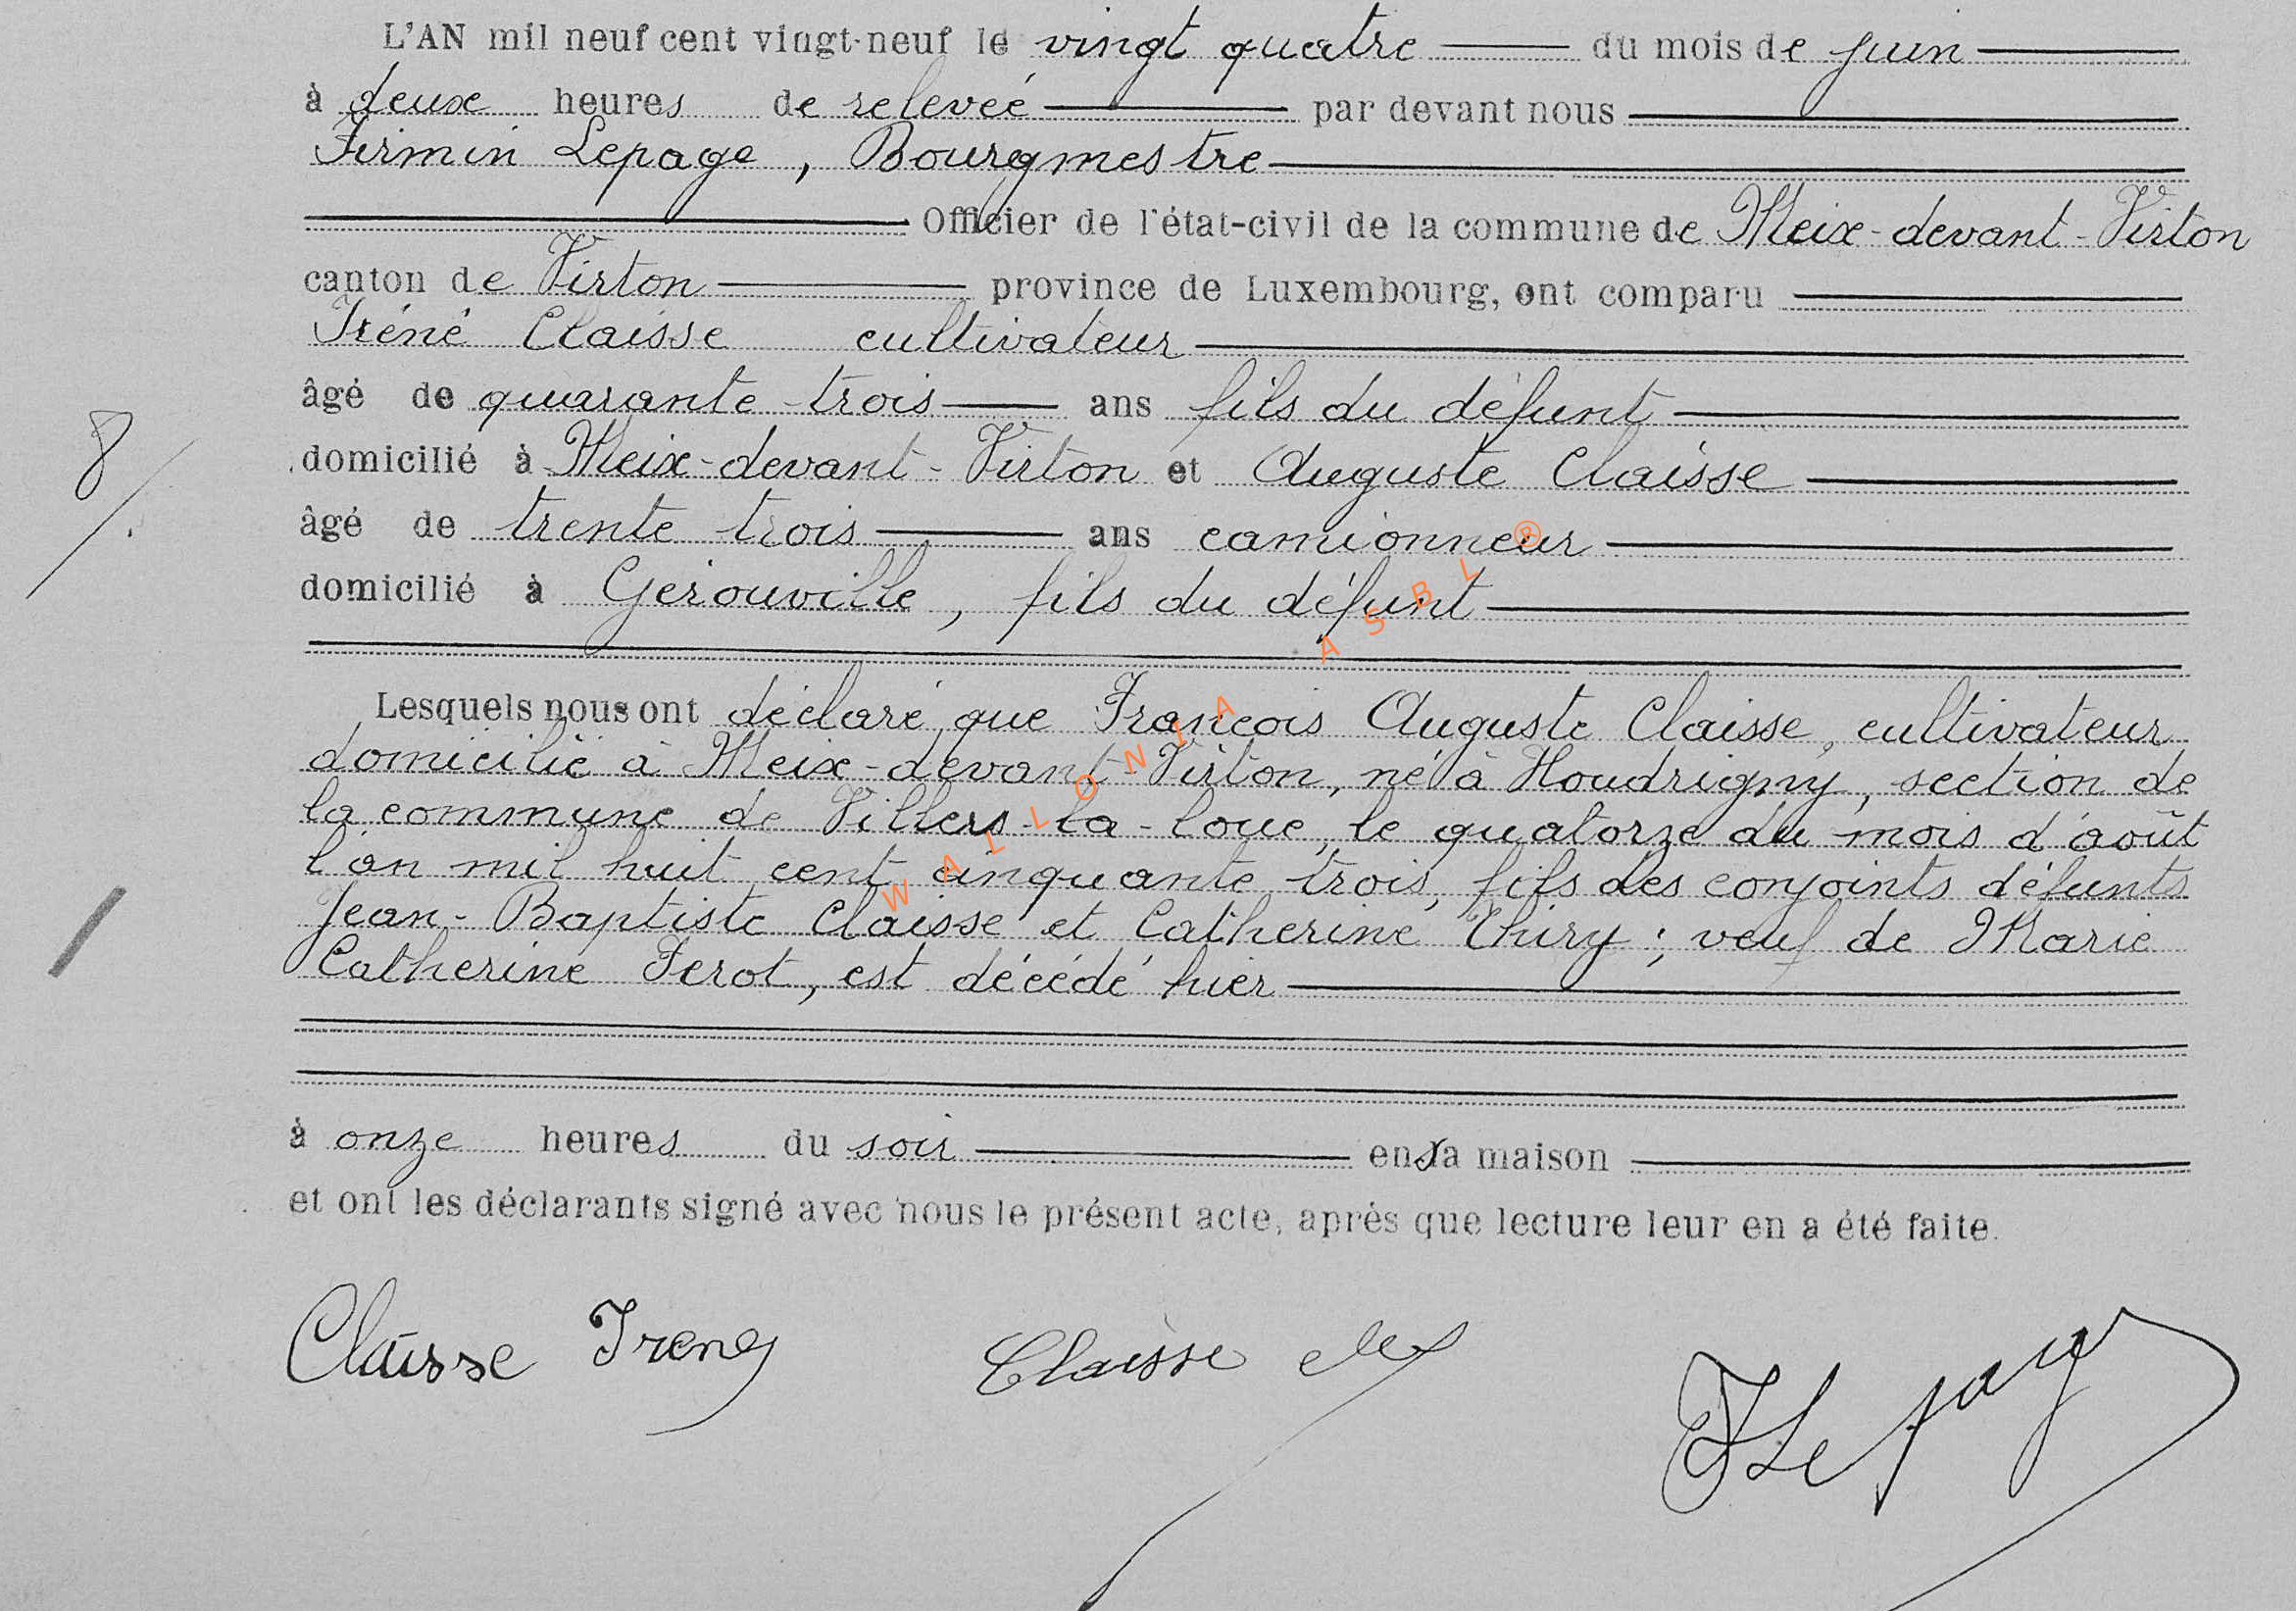 L'AN mil neuf cent vingt-neuf le vingt quatre du mois de juin
à deux heures de releveé par devant nous
Firmin Lepage, Bourgmestre
Officier de l'état-civil de la commune de Meix-devant-Virton
canton de Virton province de Luxembourg, ont comparu
Iréné Claisse cultivateur
âgé de quarante-trois ans fils du défunt
domicilié à Meix-devant-Virton et Auguste Claisse
âgé de trente trois ans camionneur
domicilié à Gérouville, fils du défunt
Lesquels nous ont déclaré que François Auguste Claisse, cultivateur
domicilié à Meix-devant-Virton, né à Houdrigny, section de
la commune de Villers-la-loue, le quatorze du mois d'août
l'an mil huit cent cinquante trois, fils des conjoints défunts
Jean-Baptiste Claisse et Catherine Thiry; veuf de Marie
Catherine Ferot, est décédé hier
à onze heures du soir en sa maison
et ont les déclarants signé avec nous le présent acte, après que lecture leur en a été faite.
Claisse Irené Claisse FLepage
8/.
WALLONIA ASBL ®